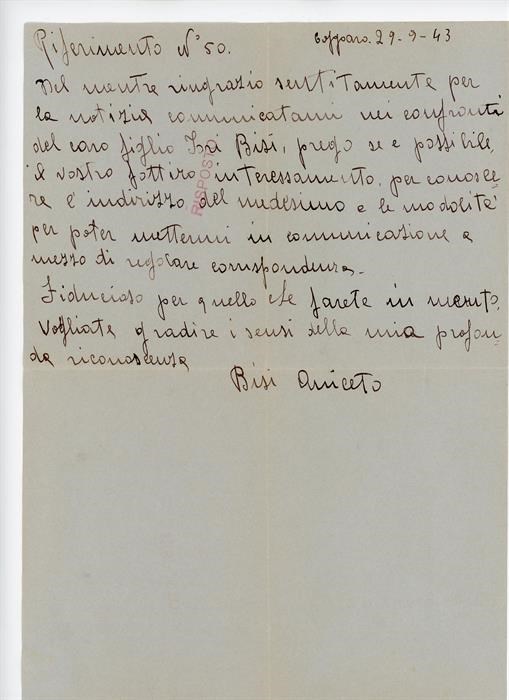 Riferimento N° 50.
29-9-43
Nel mentre ringrazio sentitamente per
la notizia comunicatami nei confronti
del caro figlio Bisi, prego se e possibile,
il vostro fattivo interessamento, per conosce=
re l'indirizzo del medesimo e le modalita'
per poter mettermi in comunicazione a
mezzo di regolare corrispondenza.-
Fiducioso per quello che farete in merito,
Vogliate gradire i sensi della mia profon=
da riconoscenza
Bisi Aniceto
RISPOST